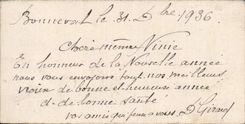 Bonneval le 31 Dbre 1936
Chère même Ninie
En honneur de la Nouvelle année
nous vous envoyons tout nos meilleurs
vœux de bonne et heureuse année
et de bonne santé
vos amis qui pense a vous. D Giraud